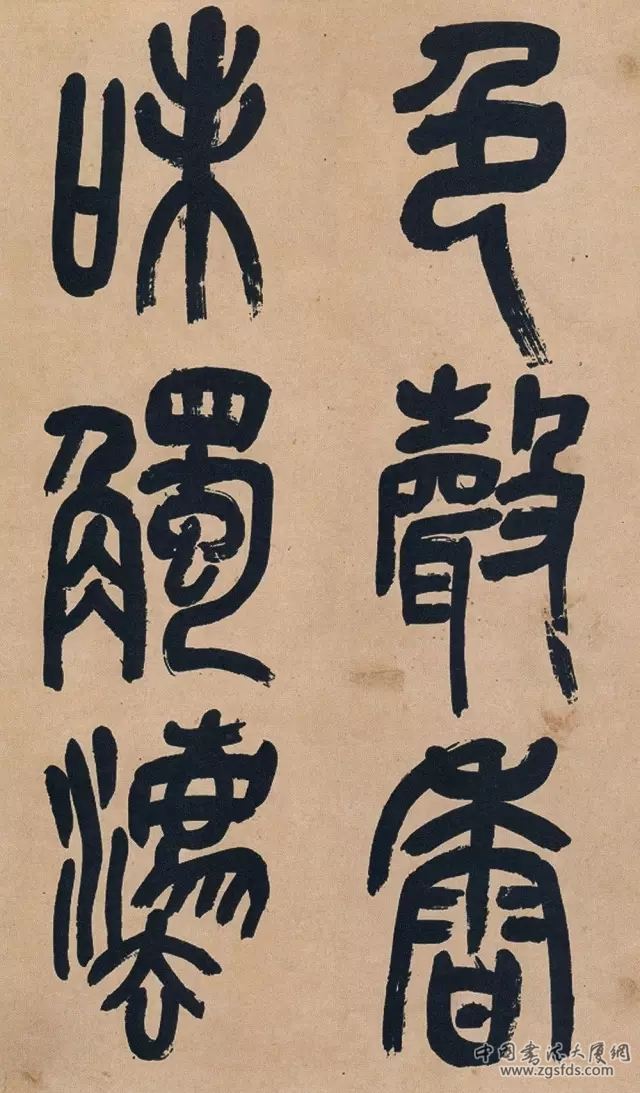 色聲香
味觸灋
中国书法大厦網
www.zgsfds.com